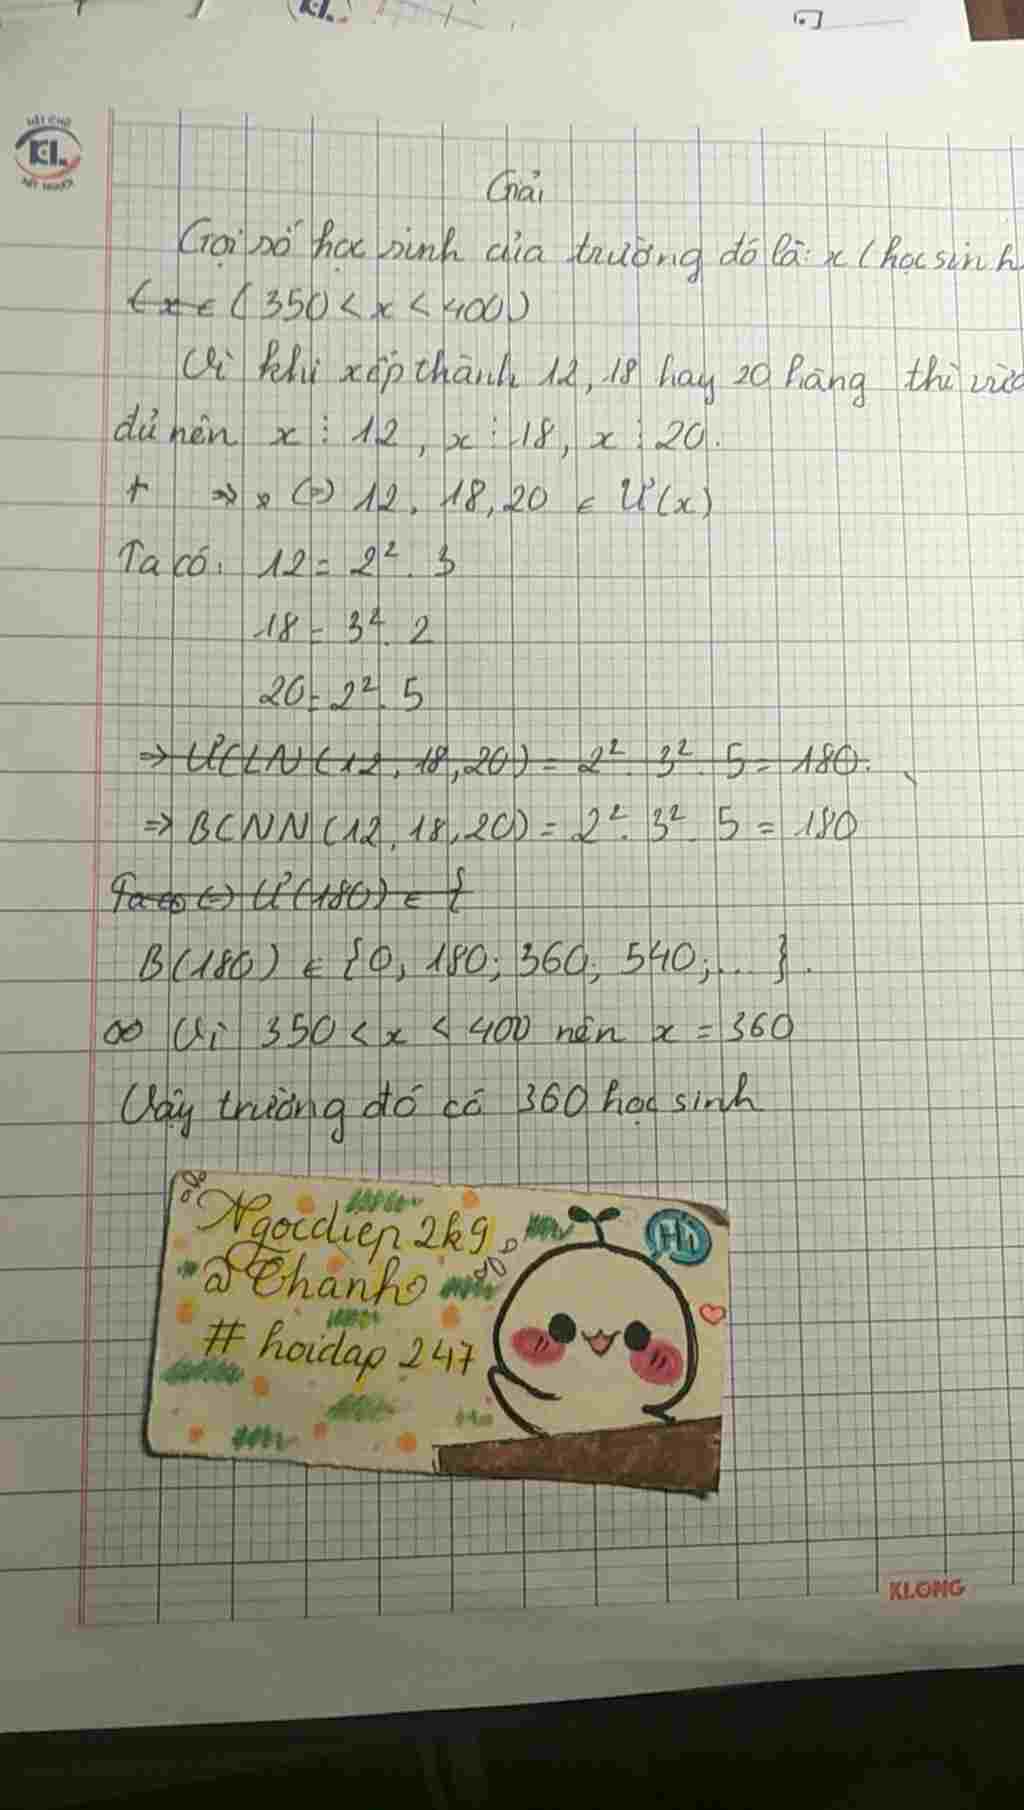 HẾT CHỮ
KL
HẾT NGƯỜI
Giải
Gọi số học sinh của trường đó là: x (học sinh
(x ∈ (350 < x < 400)
Vì khi xếp thành 12, 18 hay 20 hàng thì vừa
đủ nên x ⋮ 12, x ⋮ 18, x ⋮ 20.
+ => x (=) 12, 18, 20 ∈ Ư(x)
Ta có: 12 = 2². 3
18 = 3². 2
20 = 2². 5
=> ƯCLN (12, 18, 20) = 2². 3². 5 = 180.
=> BCNN (12, 18, 20) = 2². 3². 5 = 180
Ta có (=) Ư(180) ∈ {
B(180) ∈ {0, 180; 360; 540; ... }.
∞ Vì 350 < x < 400 nên x = 360
Vậy trường đó có 360 học sinh
Ngocdiep2k9
Hi
@Thanh
# hoidap 247
KLONG